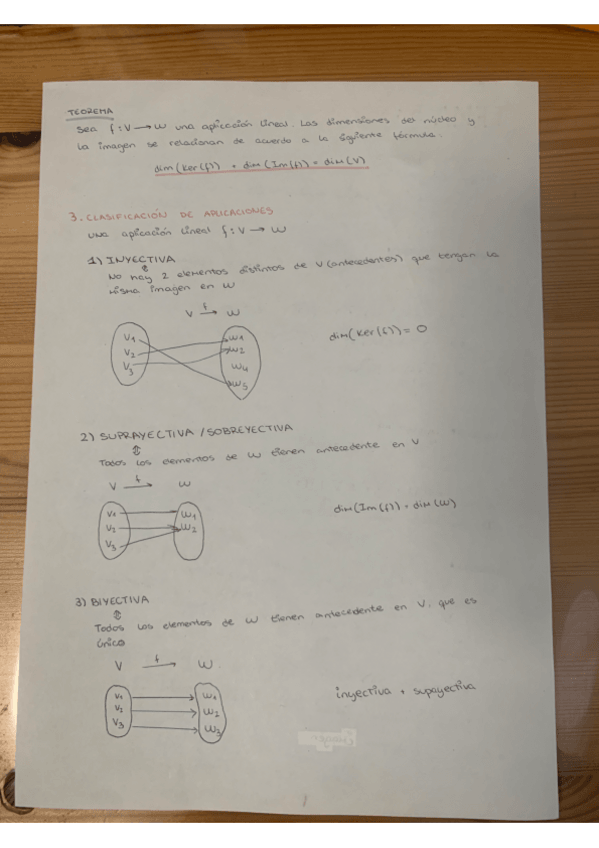 TEOREMA
Sea f: V → W una aplicación lineal. Las dimensiones del núcleo y
la imagen se relacionan de acuerdo a la siguiente fórmula:
dim(Ker(f)) + dim(Im(f)) = dim(V)
3. CLASIFICACIÓN DE APLICACIONES
UNA aplicación lineal f: V → W
1) INYECTIVA
⇕
No hay 2 elementos distintos de V (antecedentes) que tengan la
misma imagen en W
V f→ W
V1 W1
V2 W2
V3 W4
W5
dim(Ker(f)) = 0
2) SUPRAYECTIVA / SOBREYECTIVA
⇕
Todos los elementos de W tienen antecedente en V
V f→ W
V1 W1
V2 W2
V3
dim(Im(f)) = dim(W)
3) BIYECTIVA
⇕
Todos los elementos de W tienen antecedente en V, que es
único
V f→ W
V1 W1
V2 W2
V3 W3
inyectiva + suprayectiva